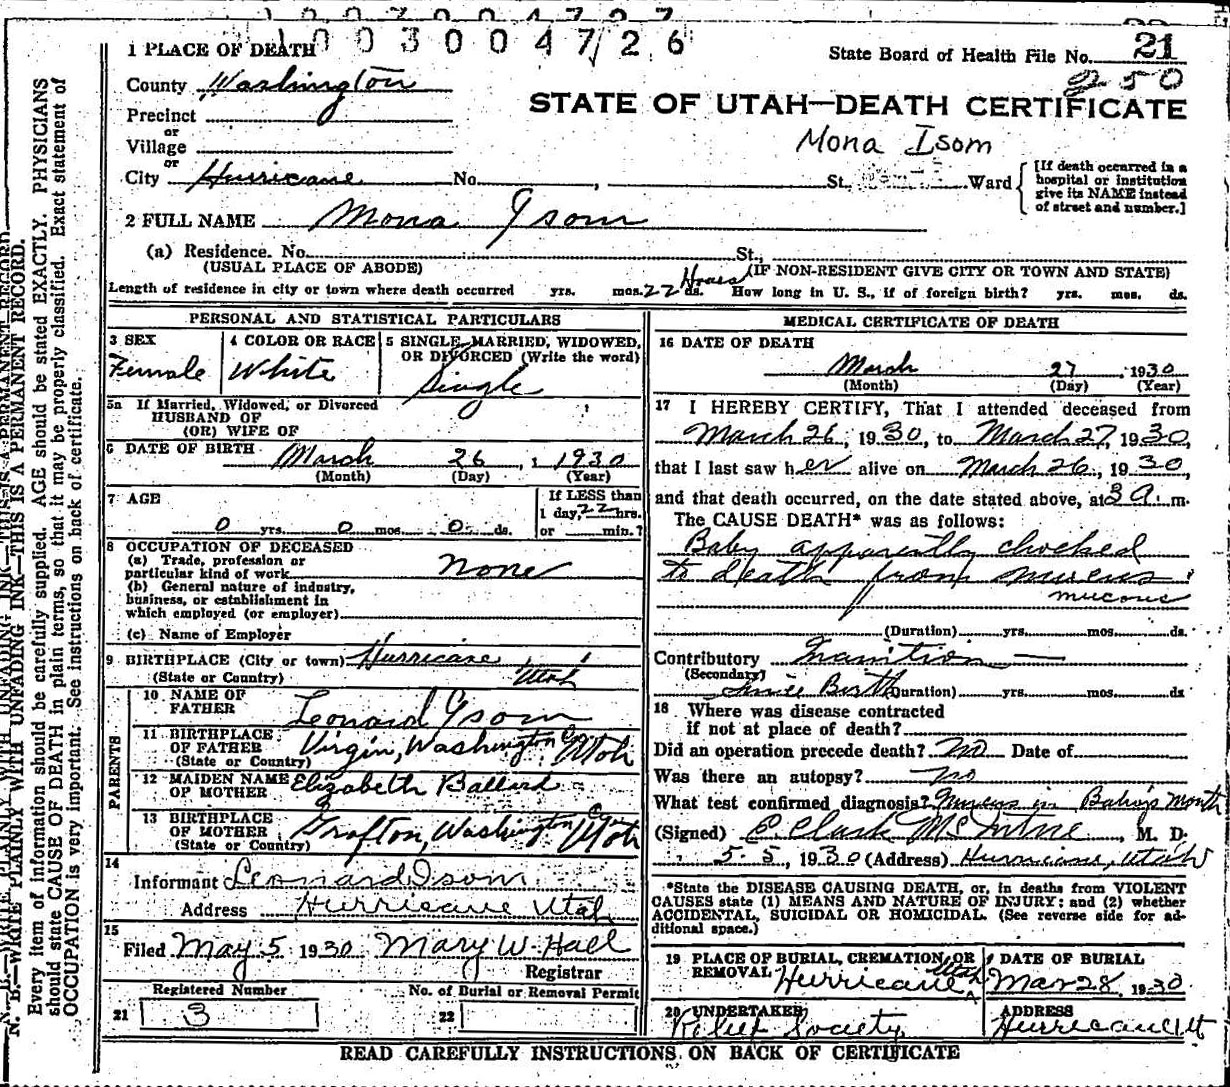 1 0 0 3 0 0 4 7 2 6
1 PLACE OF DEATH
State Board of Health File No. 21
250
County Washington
STATE OF UTAH—DEATH CERTIFICATE
Precinct
or
Mona Isom
Village
or
City Hurricane No. , St., Ward
[If death occurred in a
hospital or institution
give its NAME instead
of street and number.]
2 FULL NAME Mona Isom
(a) Residence. No. St.,
(USUAL PLACE OF ABODE) (IF NON-RESIDENT GIVE CITY OR TOWN AND STATE)
Length of residence in city or town where death occurred yrs. mos. 22 Hours ds. How long in U. S., if of foreign birth? yrs. mos. ds.
PERSONAL AND STATISTICAL PARTICULARS
3 SEX 4 COLOR OR RACE 5 SINGLE, MARRIED, WIDOWED,
OR DIVORCED (Write the word)
Female White Single
5a If Married, Widowed, or Divorced
HUSBAND OF
(OR) WIFE OF
6 DATE OF BIRTH March 26, 1930
(Month) (Day) (Year)
7 AGE If LESS than
1 day, 22 hrs.
0 yrs. 0 mos. 0 ds. or min.?
8 OCCUPATION OF DECEASED
(a) Trade, profession or
particular kind of work none
(b) General nature of industry,
business, or establishment in
which employed (or employer)
(c) Name of Employer
9 BIRTHPLACE (City or town) Hurricane,
(State or Country) Utah
PARENTS
10 NAME OF
FATHER Leonard Isom
11 BIRTHPLACE
OF FATHER Virgin, Washington Co Utah
(State or Country)
12 MAIDEN NAME
OF MOTHER Elizabeth Ballard
13 BIRTHPLACE
OF MOTHER Grafton, Washington Co Utah
(State or Country)
14
Informant Leonard Isom
Address Hurricane Utah
15
Filed May 5 1930 Mary W. Hall
Registrar
Registered Number No. of Burial or Removal Permit
21 3 22
MEDICAL CERTIFICATE OF DEATH
16 DATE OF DEATH
March 27, 1930
(Month) (Day) (Year)
17 I HEREBY CERTIFY, That I attended deceased from
March 26, 1930, to March 27, 1930,
that I last saw her alive on March 26, 1930,
and that death occurred, on the date stated above, at 3 a.m.
The CAUSE DEATH* was as follows:
Baby apparently chocked
to death from mucus
mucous
(Duration) yrs. mos. ds.
Contributory Inanition
(Secondary)
Since Birth (Duration) yrs. mos. ds
18 Where was disease contracted
if not at place of death?
Did an operation precede death? No Date of
Was there an autopsy? no
What test confirmed diagnosis? Mucus in Baby's Mouth
(Signed) C. Clark McIntire, M. D.
5-5, 1930 (Address) Hurricane, Utah
*State the DISEASE CAUSING DEATH, or, in deaths from VIOLENT
CAUSES state (1) MEANS AND NATURE OF INJURY; and (2) whether
ACCIDENTAL, SUICIDAL OR HOMICIDAL. (See reverse side for ad-
ditional space.)
19 PLACE OF BURIAL, CREMATION, OR
REMOVAL Hurricane, Utah
DATE OF BURIAL
Mar 28, 1930
20 UNDERTAKER
Relief Society
ADDRESS
Hurricane Ut
READ CAREFULLY INSTRUCTIONS ON BACK OF CERTIFICATE
N. B.—WRITE PLAINLY WITH UNFADING INK—THIS IS A PERMANENT RECORD.
Every item of information should be carefully supplied. AGE should be stated EXACTLY. PHYSICIANS
should state CAUSE OF DEATH in plain terms, so that it may be properly classified. Exact statement of
OCCUPATION is very important. See instructions on back of certificate.